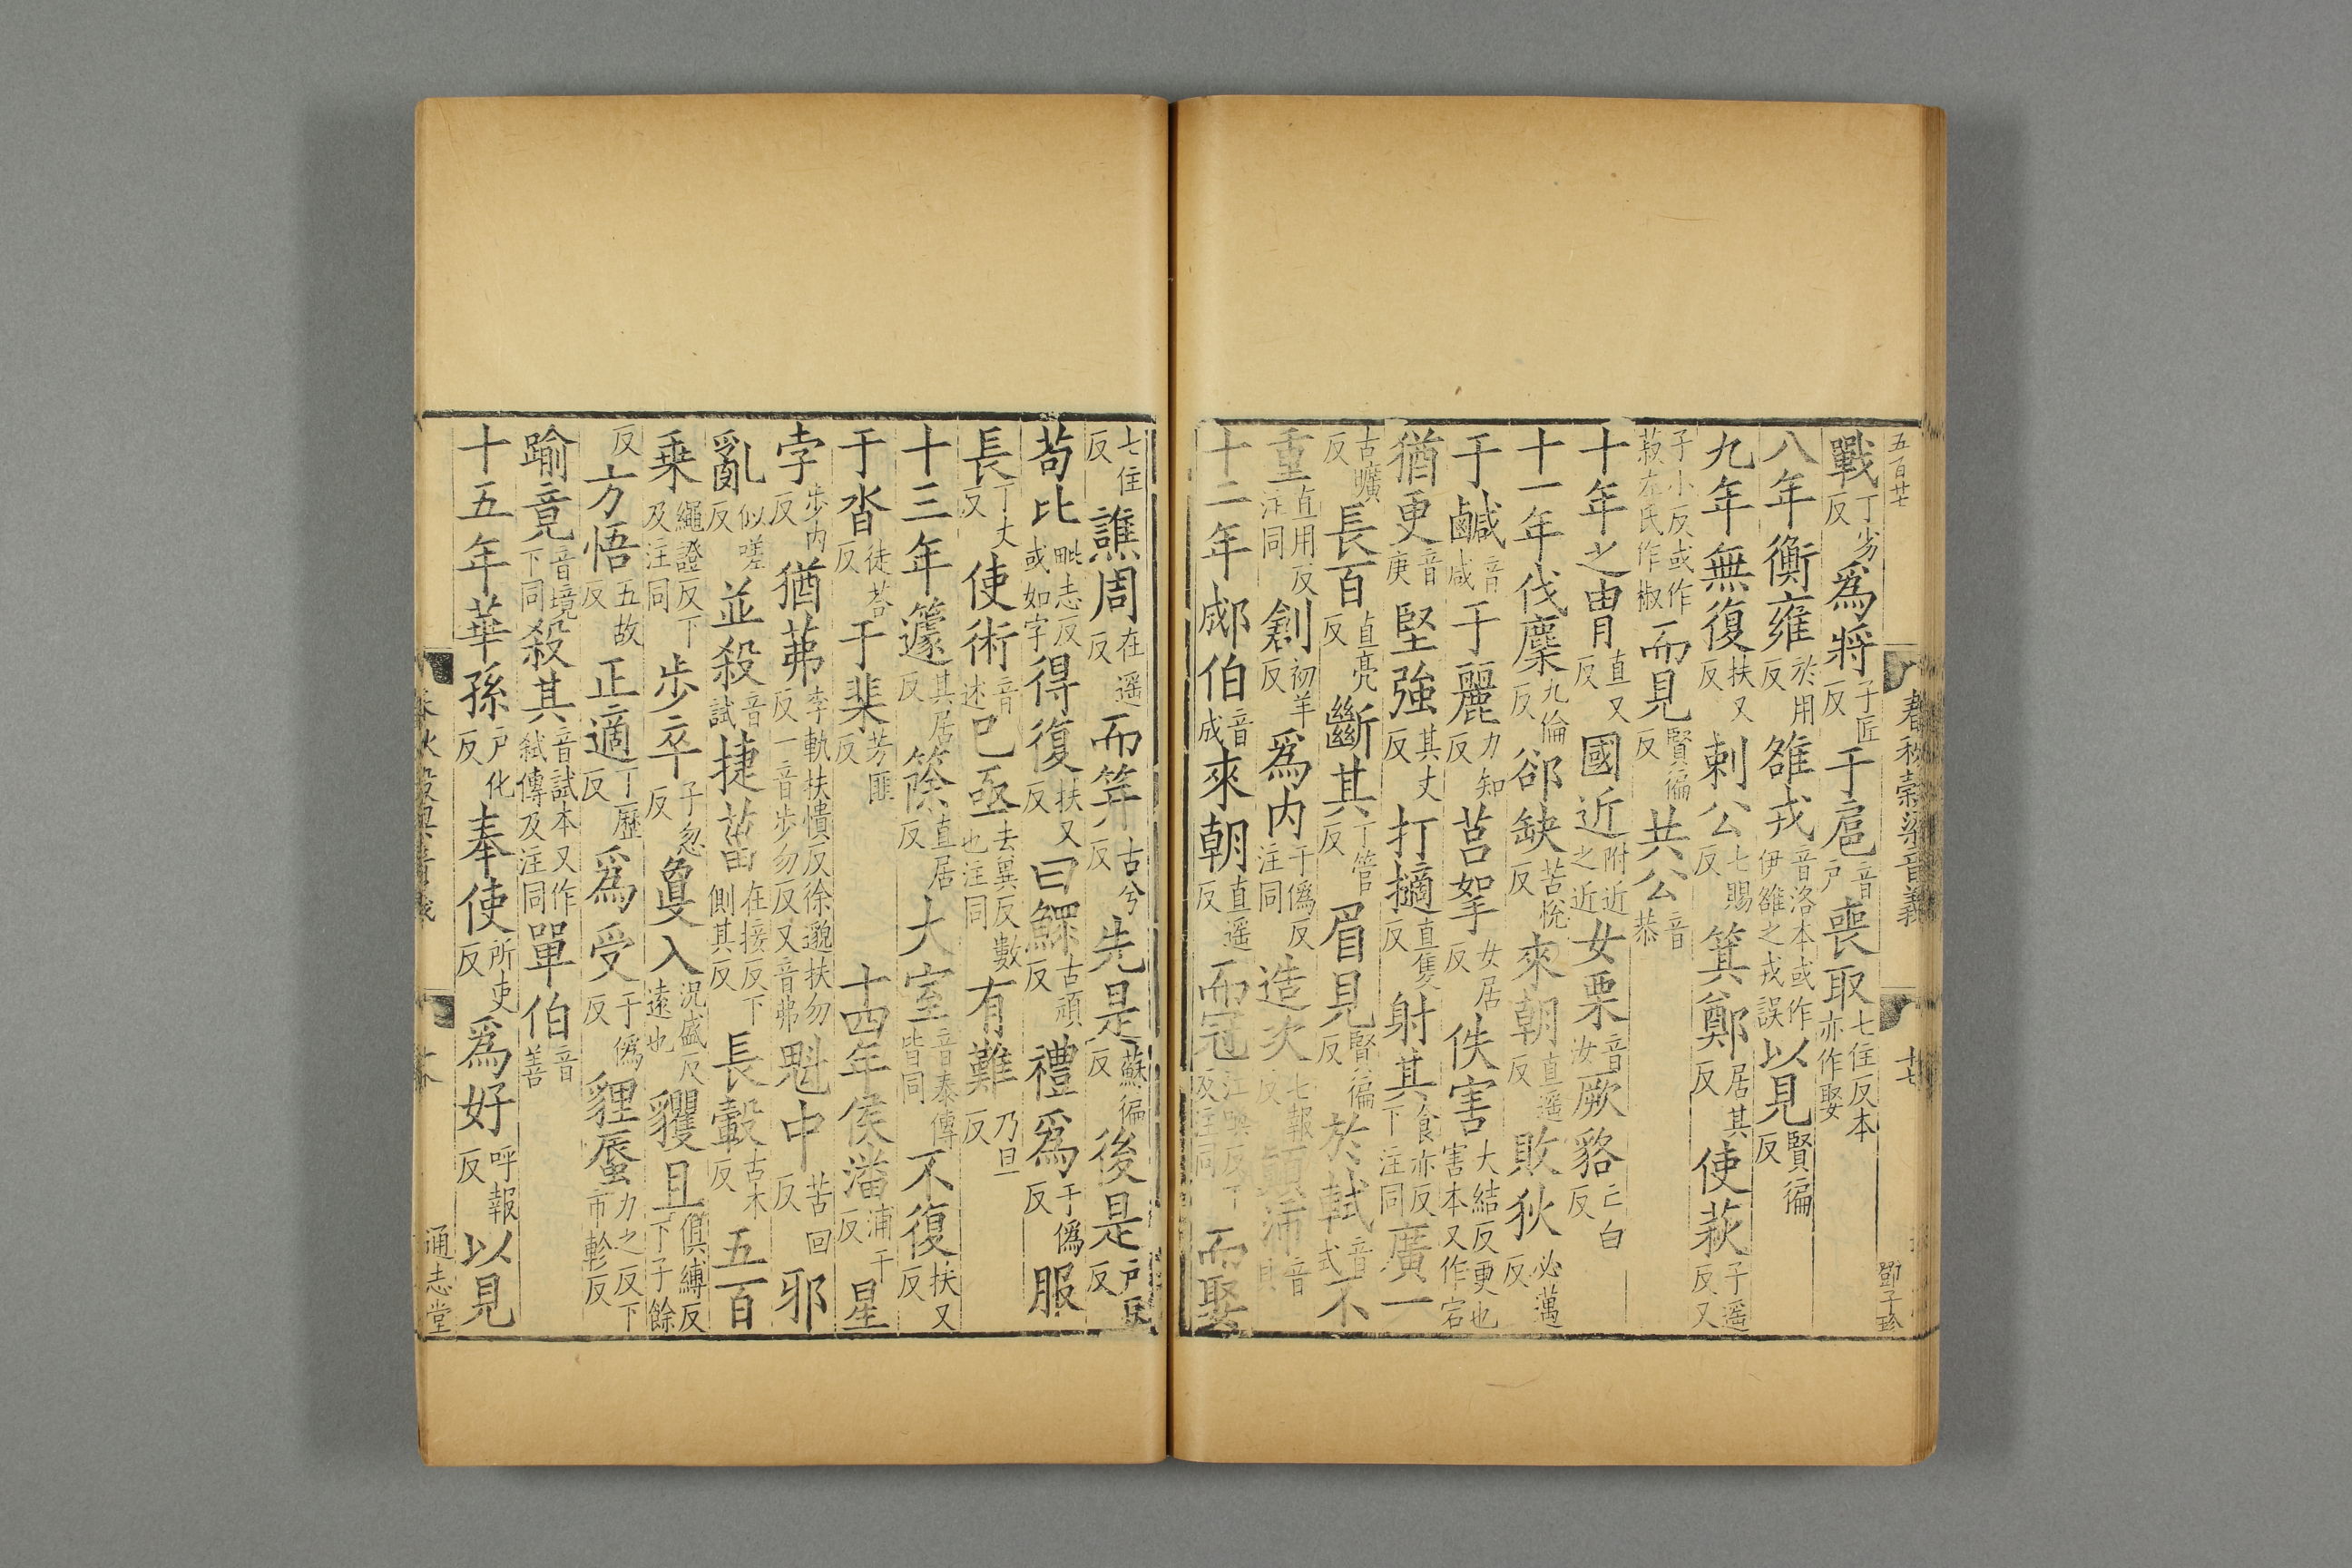 五百廿
春秋穀梁音義
十七
鄧子珍
戰丁劣反爲將子匠反于扈音户喪取七住反本亦作娶
八年衡雍於用反雒戎音洛本或作伊雒之戎誤以見賢徧反
九年無復扶又反剌公七賜反箕鄭居其反使萩子遥反又
子小反或作菽左氏作椒而見賢徧反共公音恭
十年之冑直又反國近附近之近女栗音汝厥貉亡白反
十一年伐麇九倫反郤缺苦悅反來朝直遥反敗狄必邁反
于鹹音咸于麗力知反莒挐女居反佚害大結反更也害本又作宕
猶更音庚堅強其丈反打擿直隻反射其食亦反下注同廣一
古曠反長百直亮反斷其丁管反眉見賢徧反於軾音式不
重直用反注同創初羊反爲内于僞反注同造次七報反顛沛音
十二年郕伯音成來朝直遥反而冠江喚反下及注同而娶
七住反譙周在遥反而筓古兮反先是蘇徧反後是户豆反
苟比毗志反或如字得復扶又反曰鰥古頑反禮爲于僞反服
長丁丈反使術音述巳亟去異反數也注同有難乃旦反
十三年籧其居反篨直居反大室音泰傳皆同不復扶又反
于沓徒荅反于棐芳匪反十四年侯潘浦干反星
孛步内反猶茀李軌扶憒反徐邈扶勿反一音步勿反又音弗魁中苦回反邪
亂似嗟反並殺音試捷菑在接反下側其反長轂古木反五百
乗繩證反下及注同步卒子忽反敻入況盛反遠也貜且俱縛反下子餘
反方悟五故反正適丁歷反爲受于僞反貍蜃力之反下市軫反
踰竟音境下同殺其音試本又作弑傳及注同單伯音善
十五年華孫户化反奉使所吏反爲好呼報反以見
通志堂